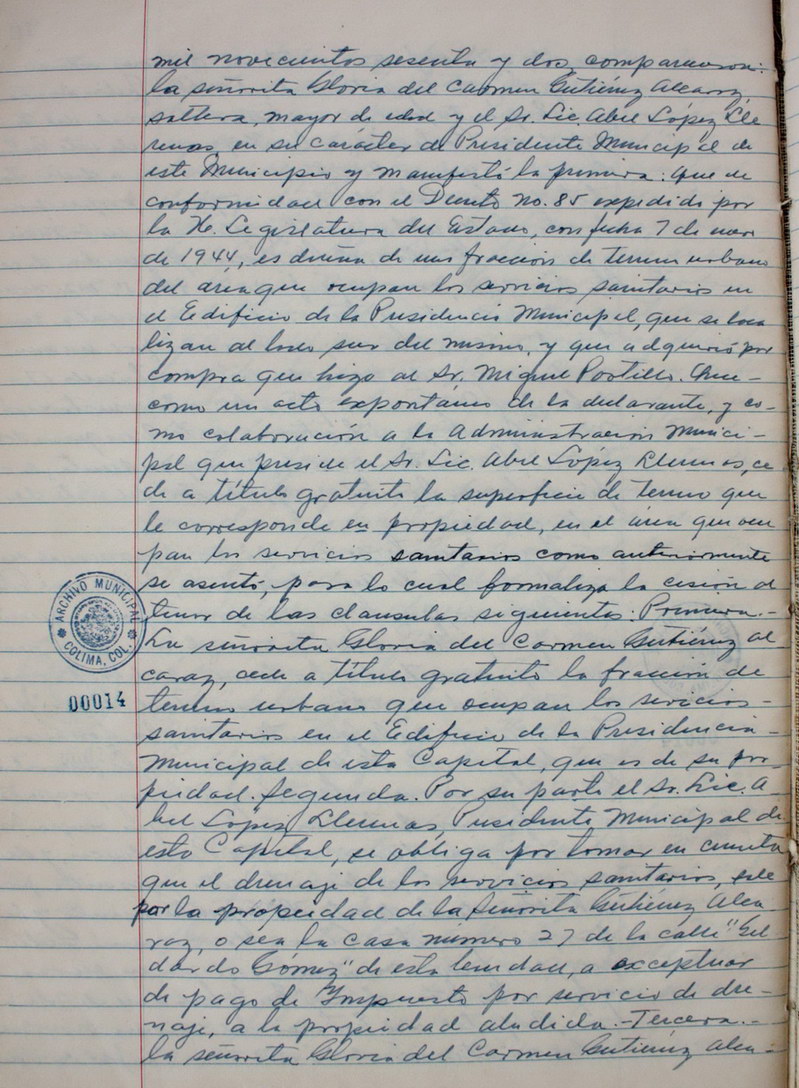 mil novecientos sesenta y dos, comparecieron:
la señorita Gloria del Carmen Gutiérrez Alcaraz,
soltera, mayor de edad y el Sr. Lic. Abel López Lle
renas, en su carácter de Presidente Municipal de
este Municipio y manifestó la primera: Que de
conformidad con el Decreto no. 85 expedido por
la H. Legislatura del Estado, con fecha 7 de
de 1944, es dueña de una fracción de terreno urbano
del area que ocupan los servicios sanitarios en
el Edificio de la Presidencia Municipal, que se loca
lizan al lado sur del mismo, y que adquirió por
compra que hizo al Sr. Miguel Portillo. Que-
como un acto expontáneo de la declarante, y co-
mo colaboración a la Administración Munici-
pal que preside el Sr. Lic. Abel López Llerenas, ce
de a título gratuito la superficie de terreno que
le corresponde en propiedad, en el área que ocu
pan los servicios sanitarios como anteriormente
se asentó, para lo cual formaliza la cesión al
tenor de las clausulas siguientes: Primera.-
La señorita Gloria del Carmen Gutiérrez Al
caraz, cede a título gratuito la fracción de
terreno urbano que ocupan los servicios-
sanitarios en el Edificio de la Presidencia-
Municipal de esta Capital, que es de su pro-
piedad. Segunda. Por su parte el Sr. Lic. A-
bel López Llerenas, Presidente Municipal de
esta Capital, se obliga por tomar en cuenta
que el drenaje de los servicios sanitarios, sale
por la propiedad de la Señorita Gutiérrez Alca-
raz, o sea la casa número 27 de la calle "Gil
dardo Gómez" de esta localidad, a exceptuar
de pago de Impuesto por servicio de dre-
naje, a la propiedad aludida.-Tercera.-
la señorita Gloria del Carmen Gutiérrez Alca-
ARCHIVO MUNICIPAL
COLIMA, COL.
00014